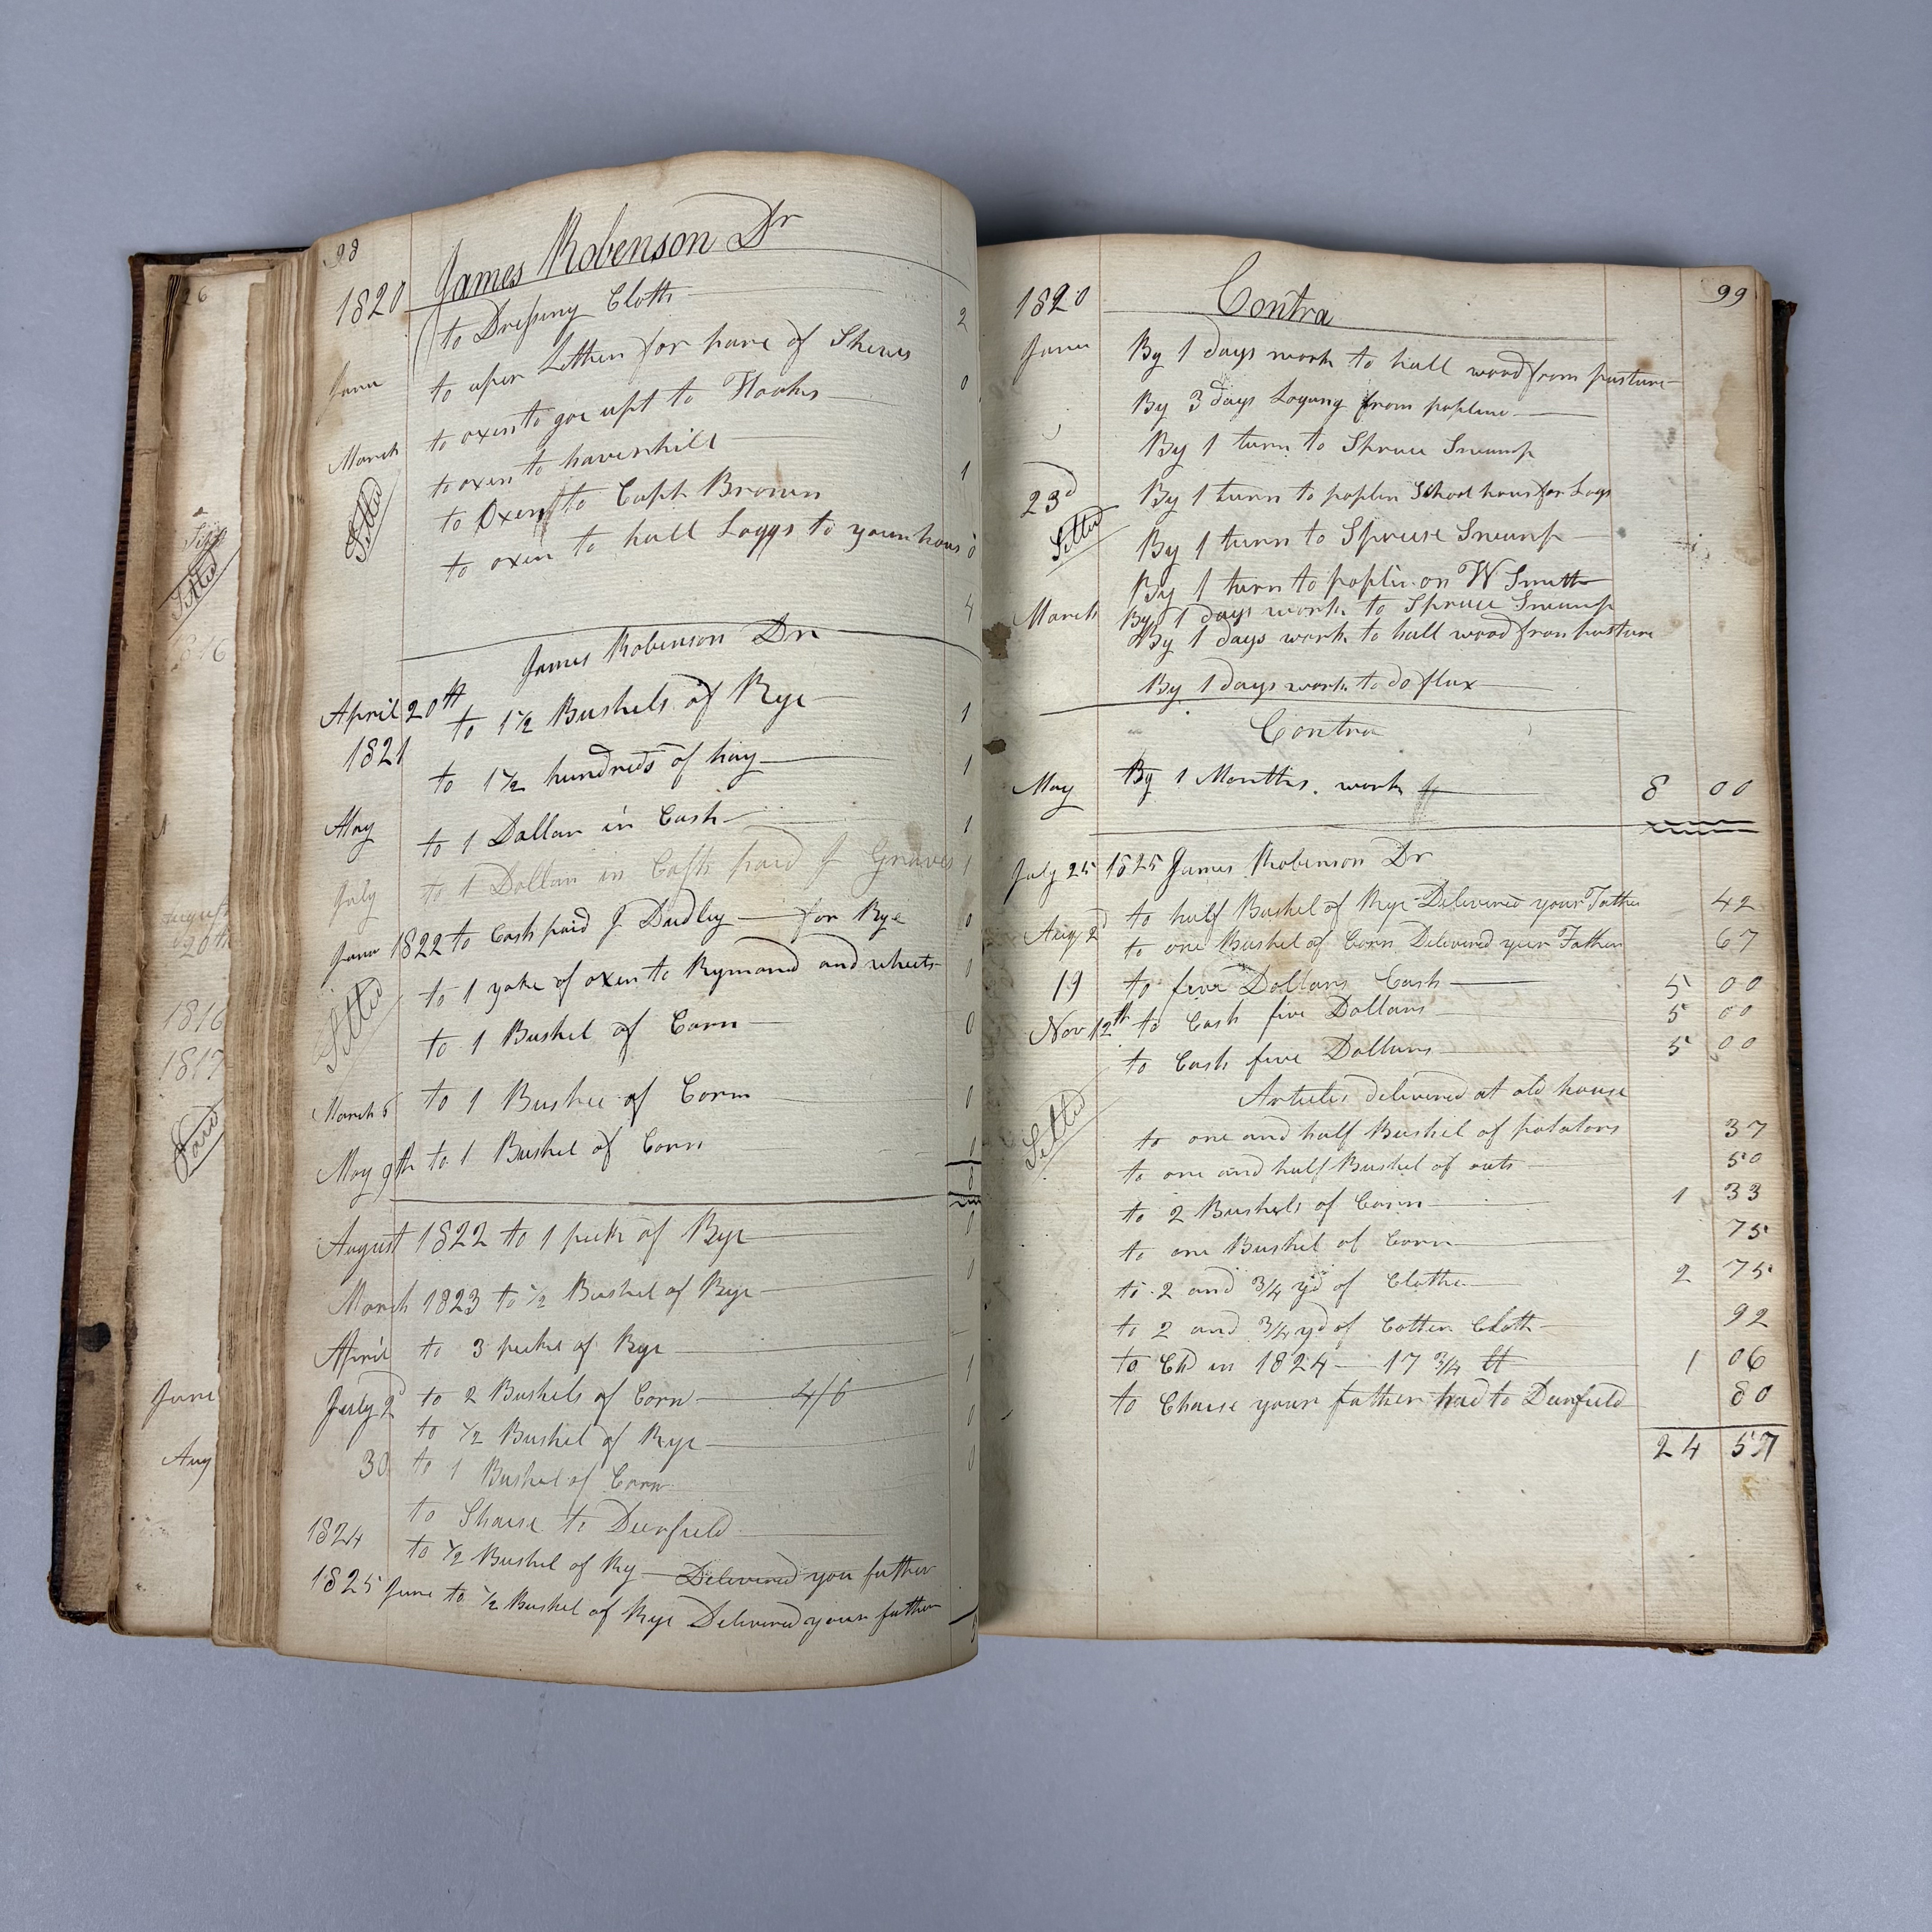 26
Settled
1816
August
20th
1816
1817
Paid
June
Aug
98
James Robenson Dr
1820
to Dressing Cloth 2
Janu to uper Lether for pare of Shews 0
to oxen to goe upt to Hooks
March to oxen to haverhill 1
Settled
to Oxen to Capt Brown
to oxen to hall Loggs to your hous 0
4
James Robenson Dr
April 20th to 1 1/2 Bushels of Rye 1
1821
to 1 1/2 hundreds of hay 1
May to 1 Dollar in Cash 1
July to 1 Dollar in Cash paid J Graves 1
Janu 1822 to Cash paid J Dudley for Rye 0
Settled
to 1 yoke of oxen to Rymond and wheels 0
to 1 Bushel of Corn 0
March 6 to 1 Bushel of Corn 0
May 9th to 1 Bushel of Corn 0
8
August 1822 to 1 peck of Rye
March 1823 to 1/2 Bushel of Rye 0
April to 3 pecks of Rye
July 2d to 2 Bushels of Corn 4/6 1
to 1/2 Bushel of Rye 0
30 to 1 Bushel of Corn 0
to Shaise to Deerfield
1824 to 1/2 Bushel of Ry Delivered you father
1825 June to 1/2 Bushel of Rye Delivered your father
99
1820 Contra
Janu By 1 days work to hall wood from pasture
By 3 days Logung from poplin
By 1 turn to Spruce Swamp
23d By 1 turn to poplin School hous for Logs
Settled
By 1 turn to Spruse Swamp
By 1 turn to poplin on W Smith
March By 1 days work to Spruce Swamp
By 1 days work to hall wood from pasture
By 1 days work to do flax
Contra
May By 1 Months work 8 00
July 25 1825 James Robenson Dr
to half Bushel of Rye Delivered your Father 42
Aug 2d to one Bushel of Corn Delivered your Father 67
19 to five Dollars Cash 5 00
Nov 12th to Cash five Dollars 5 00
to Cash five Dollars 5 00
Articles delivered at old house
Settled
to one and half Bushel of potators 37
to one and half Bushel of oats 50
to 2 Bushels of Corn 1 33
to one Bushel of Corn 75
to 2 and 3/4 yd of Clothe 2 75
to 2 and 3/4 yd of Cotten Cloth 92
to Chd in 1824 17 3/4 lt 1 06
to Chaise your father had to Deerfield 80
24 57